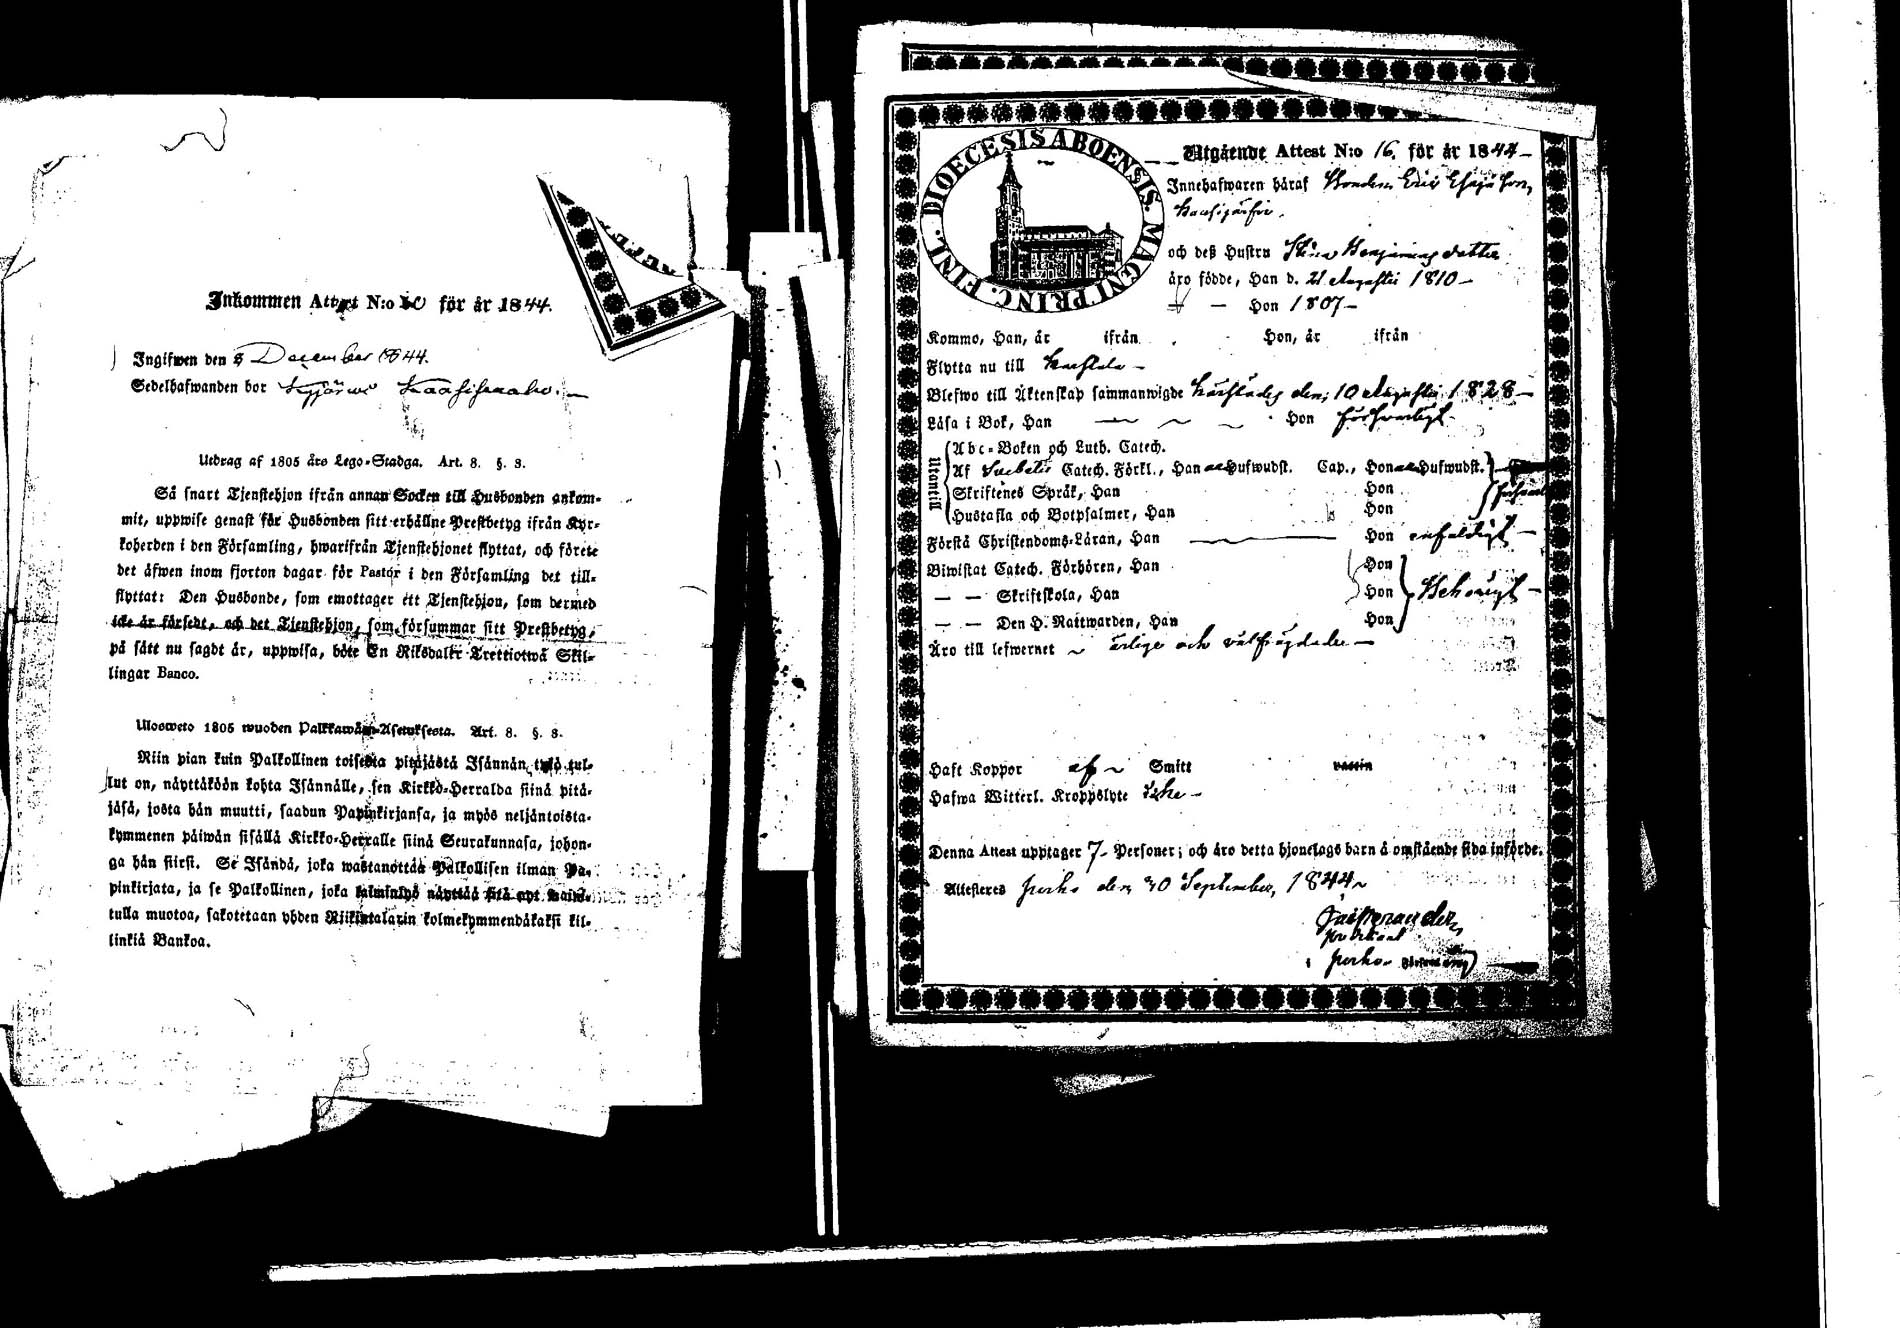 Inkommen Attest N:o 10 för år 1844.
Ingifwen den 8 December 1844.
Sedelhafwanden bor Kyjärwi
Utdrag af 1805 års Lego-Stadga. Art. 8. §. 3.
Så snart Tjenstehjon ifrån annan Socken till Husbonden ankom-
mit, uppwise genast för Husbonden sitt erhållne Prestbetyg ifrån Kyr-
koherden i den Församling, hwarifrån Tjenstehjonet flyttat, och förete
det äfwen inom fjorton dagar för Pastor i den Församling det till-
flyttat: Den Husbonde, som emottager ett Tjenstehjon, som dermed
icke är försedt, och det Tjenstehjon, som försummar sitt Prestbetyg,
på sätt nu sagdt är, uppwisa, böte En Riksdaler Trettiotwå Skil-
lingar Banco.
Ulosweto 1805 wuoden Palkkawäen-Asetuksesta. Art. 8. §. 3.
Niin pian kuin Palkollinen toisesta pitäjästä Isännän tykö tul-
lut on, näyttäköön kohta Isännälle, sen Kirkko-Herralda siinä pitä-
jäsä, josta hän muutti, saadun Papinkirjansa, ja myös neljäntoista-
kymmenen päiwän sisällä Kirkko-Herralle siinä Seurakunnasa, johon-
ga hän siirsi. Se Isändä, joka wastanottaa Palkollisen ilman Pa-
pinkirjata, ja se Palkollinen, joka laiminlyö näyttää sitä nyt mainí-
tulla muotoa, sakotetaan yhden Riikintalarin kolmekymmendäkaksi kil-
linkiä Bankoa.
DIOECESIS ABOENSIS. MAGNI PRINC. FINL.
Utgående Attest N:o 16. för år 1844
Innehafwaren häraf Bonden Eric Esajasson
och deß Hustru Stina Benjaminsdotter
äro födde, Han d. 21 Augusti 1810
Hon 1807
Kommo, Han, år ifrån Hon, år ifrån
Flytta nu till Karstula
Blefwo till Äktenskap sammanwigde den 10 Augusti 1828
Läsa i Bok, Han Hon försvarligt
Utantill
Abc-Boken och Luth. Catech.
Af Svebelii Catech. Förkl., Han Hufwudst. Cap., Hon Hufwudst.
Skriftenes Språk, Han Hon
Hustafla och Botpsalmer, Han Hon
Förstå Christendoms-Läran, Han Hon enfaldigt
Biwistat Catech. Förhören, Han Hon
Skriftskola, Han Hon Behörigt
Den H. Nattwarden, Han Hon
Äro till lefwernet ärlige och välfrägdade
Haft Koppor af Smitt vaccin
Hafwa Witterl. Kroppslyte icke
Denna Attest upptager 7 Personer; och äro detta hjonelags barn å omstående sida införde.
Attesteras Perho den 30 September 1844
i Perho Församling